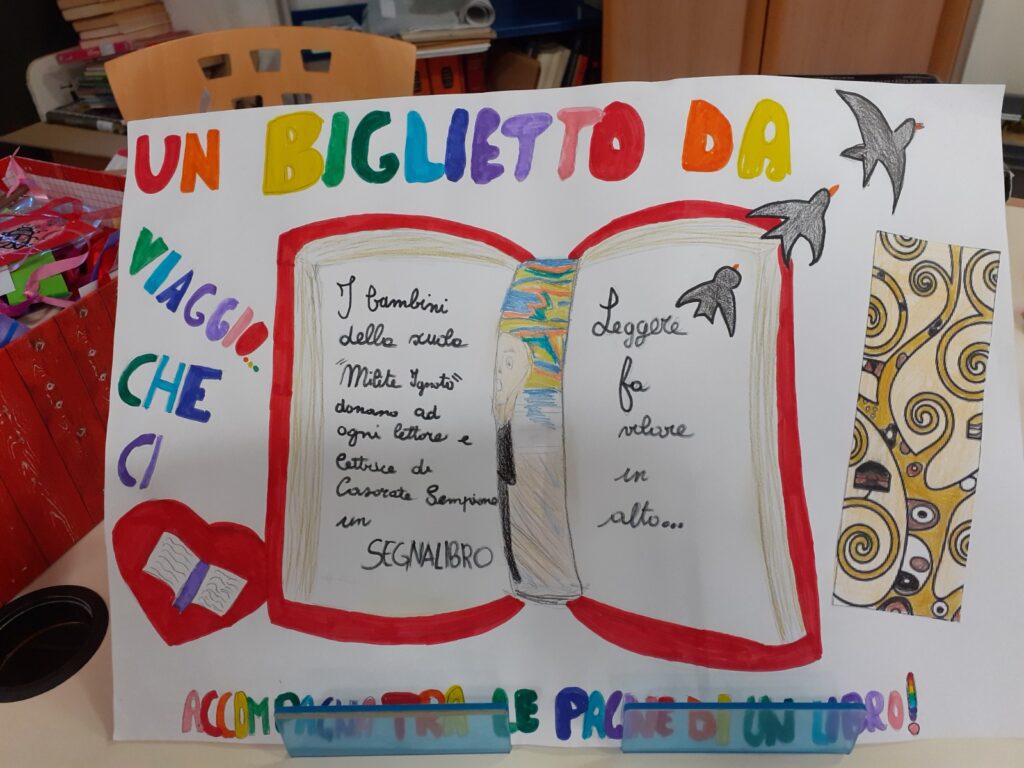 UN BIGLIETTO DA
VIAGGIO...
CHE
CI
I bambini
della scuola
"Milite Ignoto"
donano ad
ogni lettore e
lettrice di
Casorate Sempione
un
SEGNALIBRO
Leggere
fa
volare
in
alto...
ACCOMPAGNA TRA LE PAGINE DI UN LIBRO!